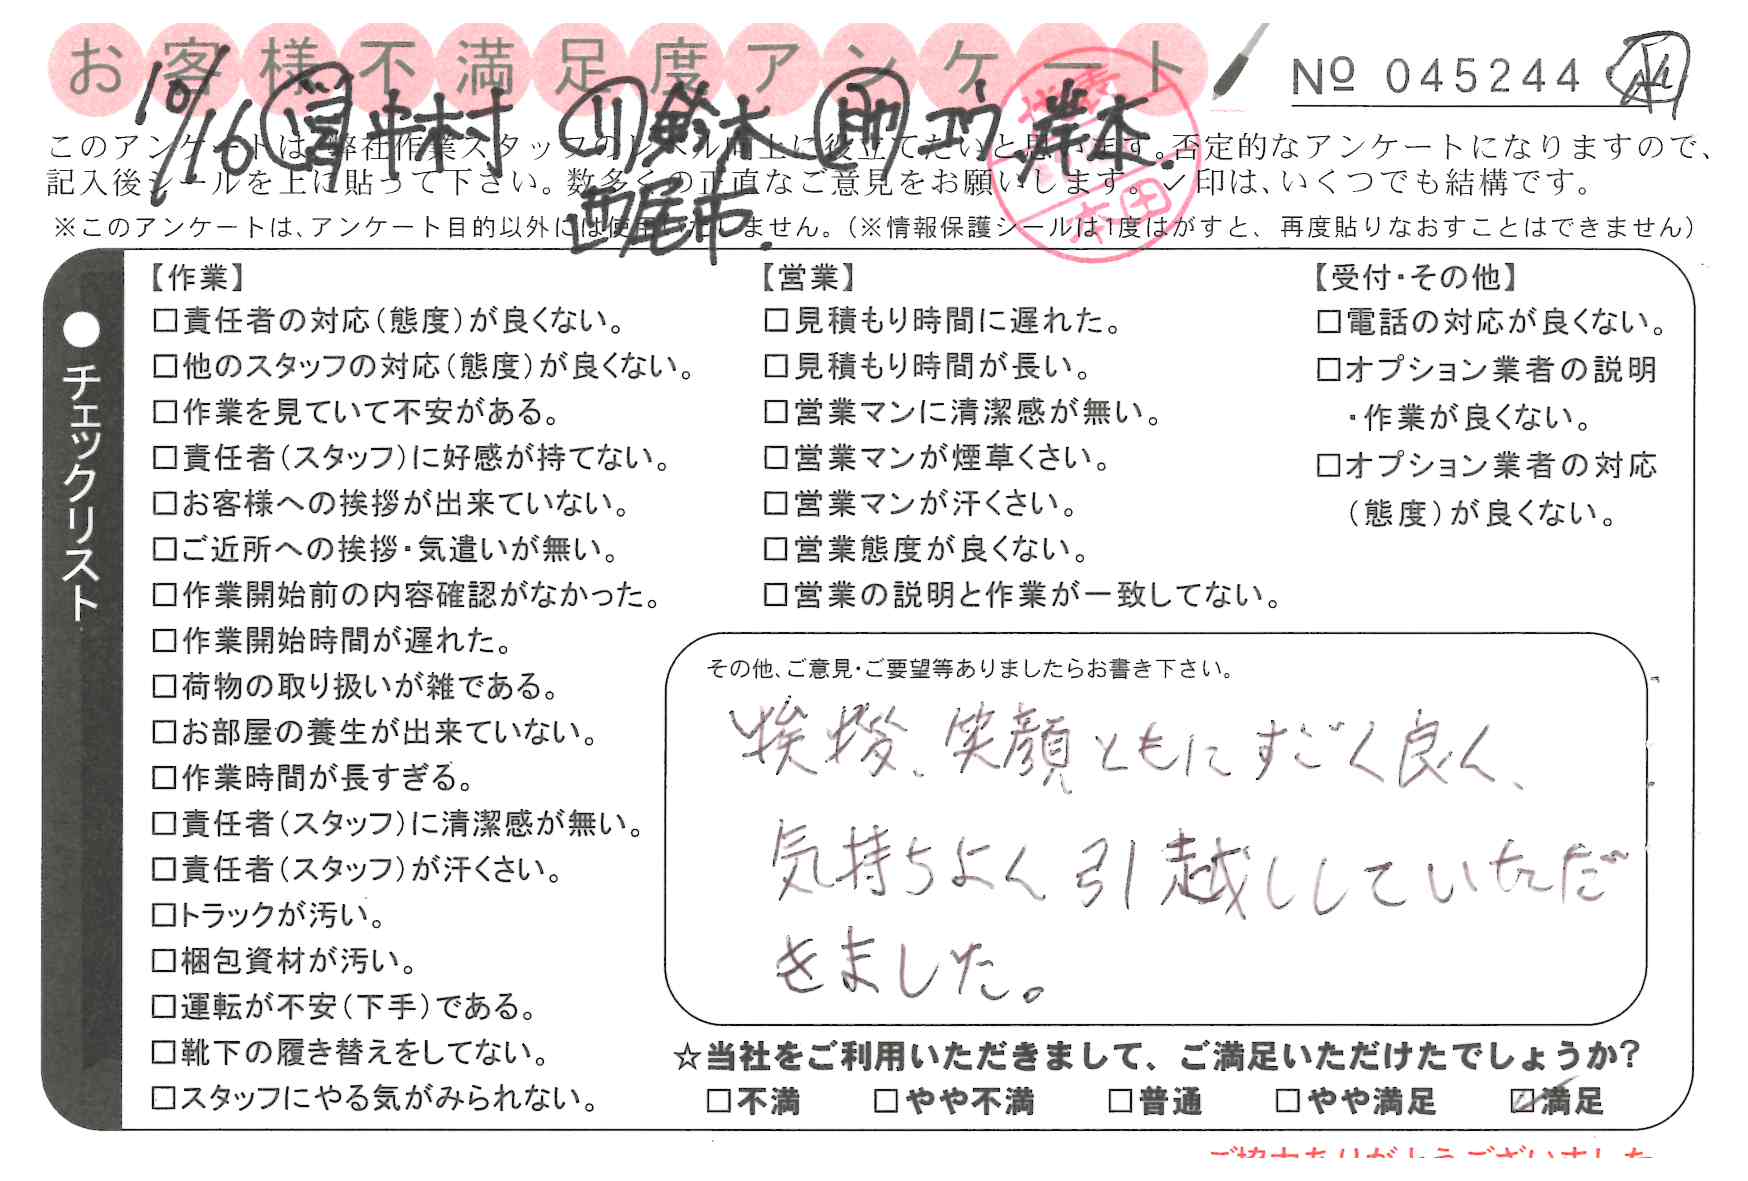 お客様不満足度アンケート
№ 045244
10/16 鈴木
西尾市.
このアンケートは、弊社作業スタッフのレベル向上に役立てたいと思います。否定的なアンケートになりますので、
記入後シールを上に貼って下さい。数多くの正直なご意見をお願いします。✓印は、いくつでも結構です。
※このアンケートは、アンケート目的以外には使用いたしません。（※情報保護シールは1度はがすと、再度貼りなおすことはできません）
本田
●チェックリスト
【作業】
□責任者の対応（態度）が良くない。
□他のスタッフの対応（態度）が良くない。
□作業を見ていて不安がある。
□責任者（スタッフ）に好感が持てない。
□お客様への挨拶が出来ていない。
□ご近所への挨拶・気遣いが無い。
□作業開始前の内容確認がなかった。
□作業開始時間が遅れた。
□荷物の取り扱いが雑である。
□お部屋の養生が出来ていない。
□作業時間が長すぎる。
□責任者（スタッフ）に清潔感が無い。
□責任者（スタッフ）が汗くさい。
□トラックが汚い。
□梱包資材が汚い。
□運転が不安（下手）である。
□靴下の履き替えをしてない。
□スタッフにやる気がみられない。
【営業】
□見積もり時間に遅れた。
□見積もり時間が長い。
□営業マンに清潔感が無い。
□営業マンが煙草くさい。
□営業マンが汗くさい。
□営業態度が良くない。
□営業の説明と作業が一致してない。
【受付・その他】
□電話の対応が良くない。
□オプション業者の説明
・作業が良くない。
□オプション業者の対応
（態度）が良くない。
その他、ご意見・ご要望等ありましたらお書き下さい。
挨拶、笑顔ともにすごく良く、
気持ちよく引越ししていただ
きました。
☆当社をご利用いただきまして、ご満足いただけたでしょうか?
□不満 □やや不満 □普通 □やや満足 ☑満足
ご協力ありがとうございました